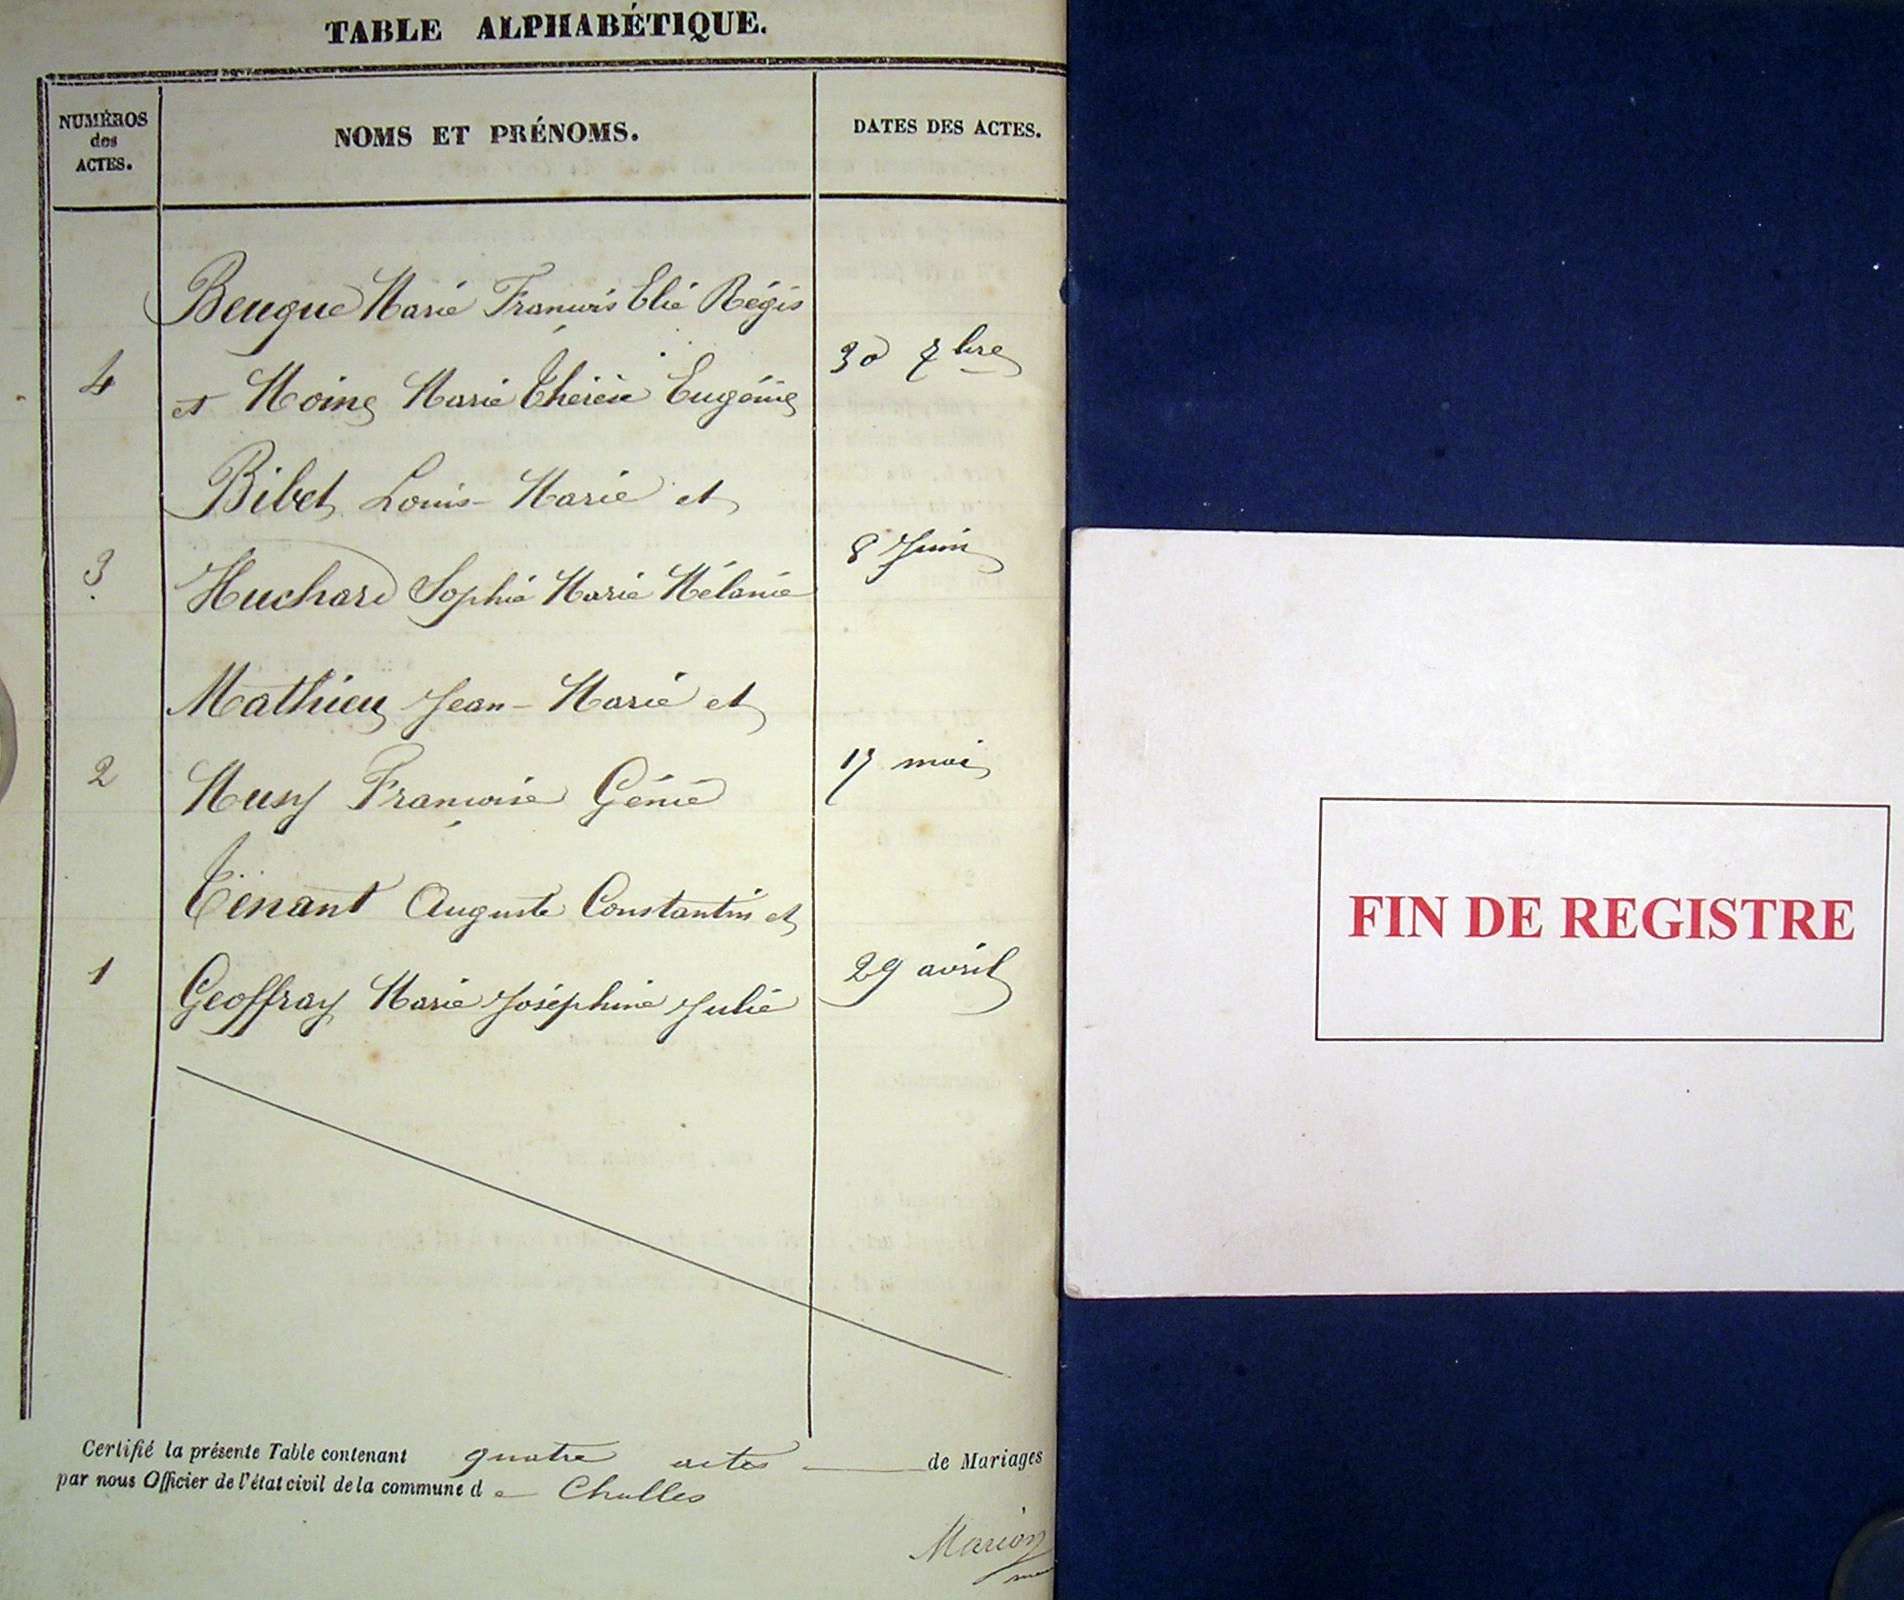 TABLE ALPHABÉTIQUE.
NUMÉROS
des
ACTES.
NOMS ET PRÉNOMS.
DATES DES ACTES.
Beugue Marie François Elie Régis
4 et Moine Marie Thérèse Eugénie 30 7bre
Bibet Louis-Marie et
3 Huchard Sophie Marie Mélanie 8 Juin
Mathieu Jean-Marie et
2 Musy Françoise Génie 17 mai
Tenant Auguste Constantin et
1 Geoffray Marie Joséphine Julie 29 avril
Certifié la présente Table contenant quatre actes de Mariages
par nous Officier de l'état civil de la commune de Challes
Marion
FIN DE REGISTRE